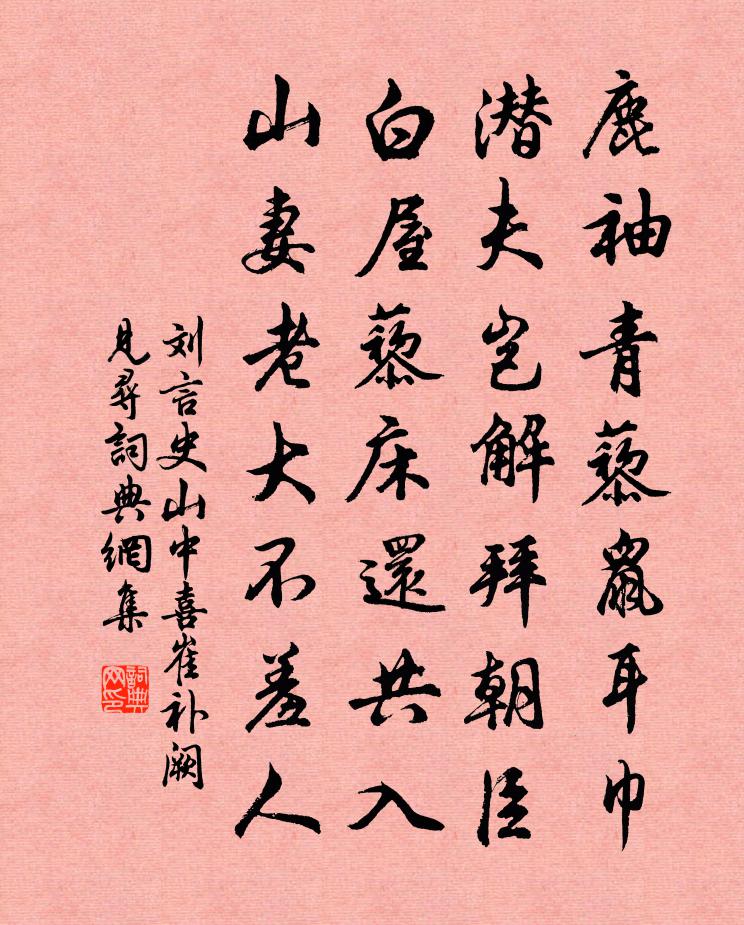 鹿袖青藜鼠耳巾
潜夫岂解拜朝臣
白屋藜床還共入
山妻老大不羞人
刘言史山中喜崔补阙
見尋詞典網集
詞典网印